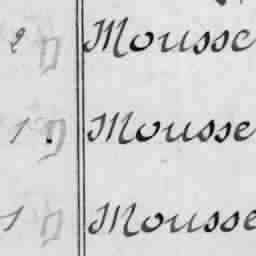 2 Mousse
1 Mousse
1 Mousse